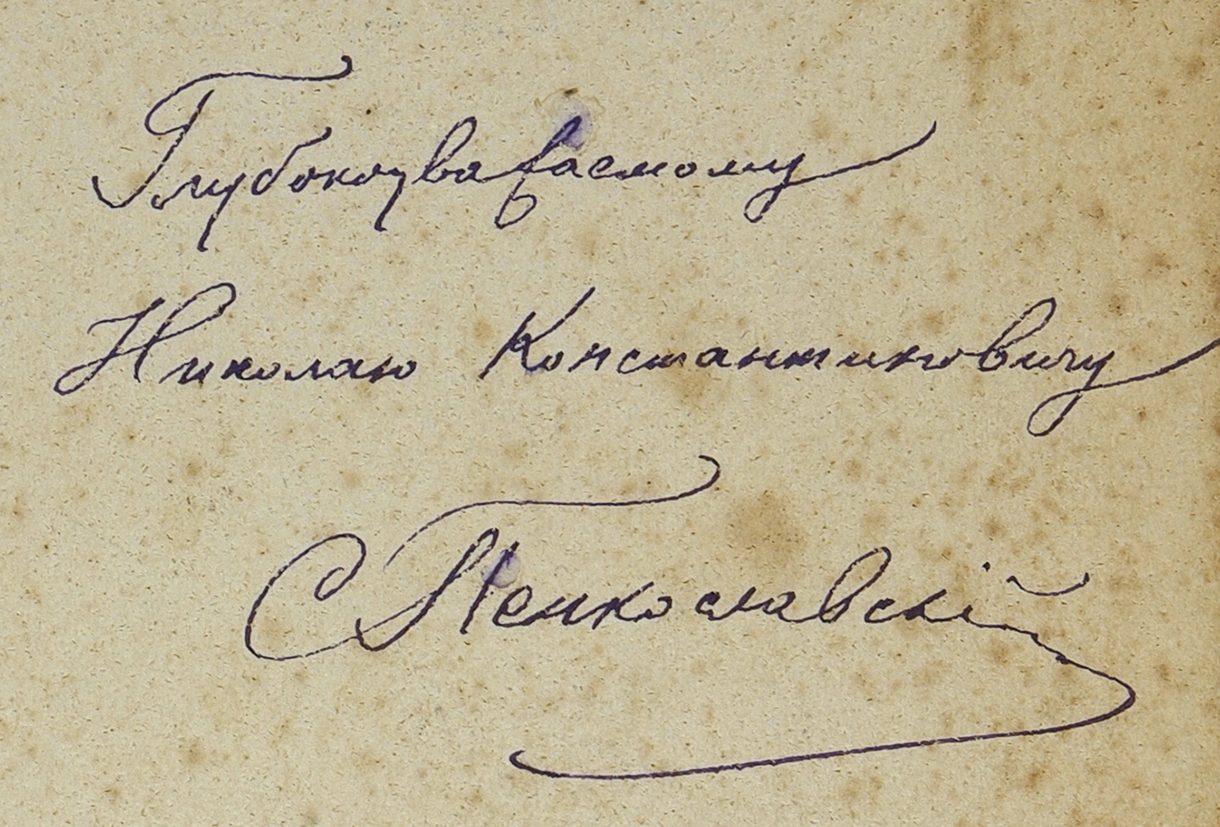 Глубокоуважаемому
Николаю Константиновичу
С Пенкославскій